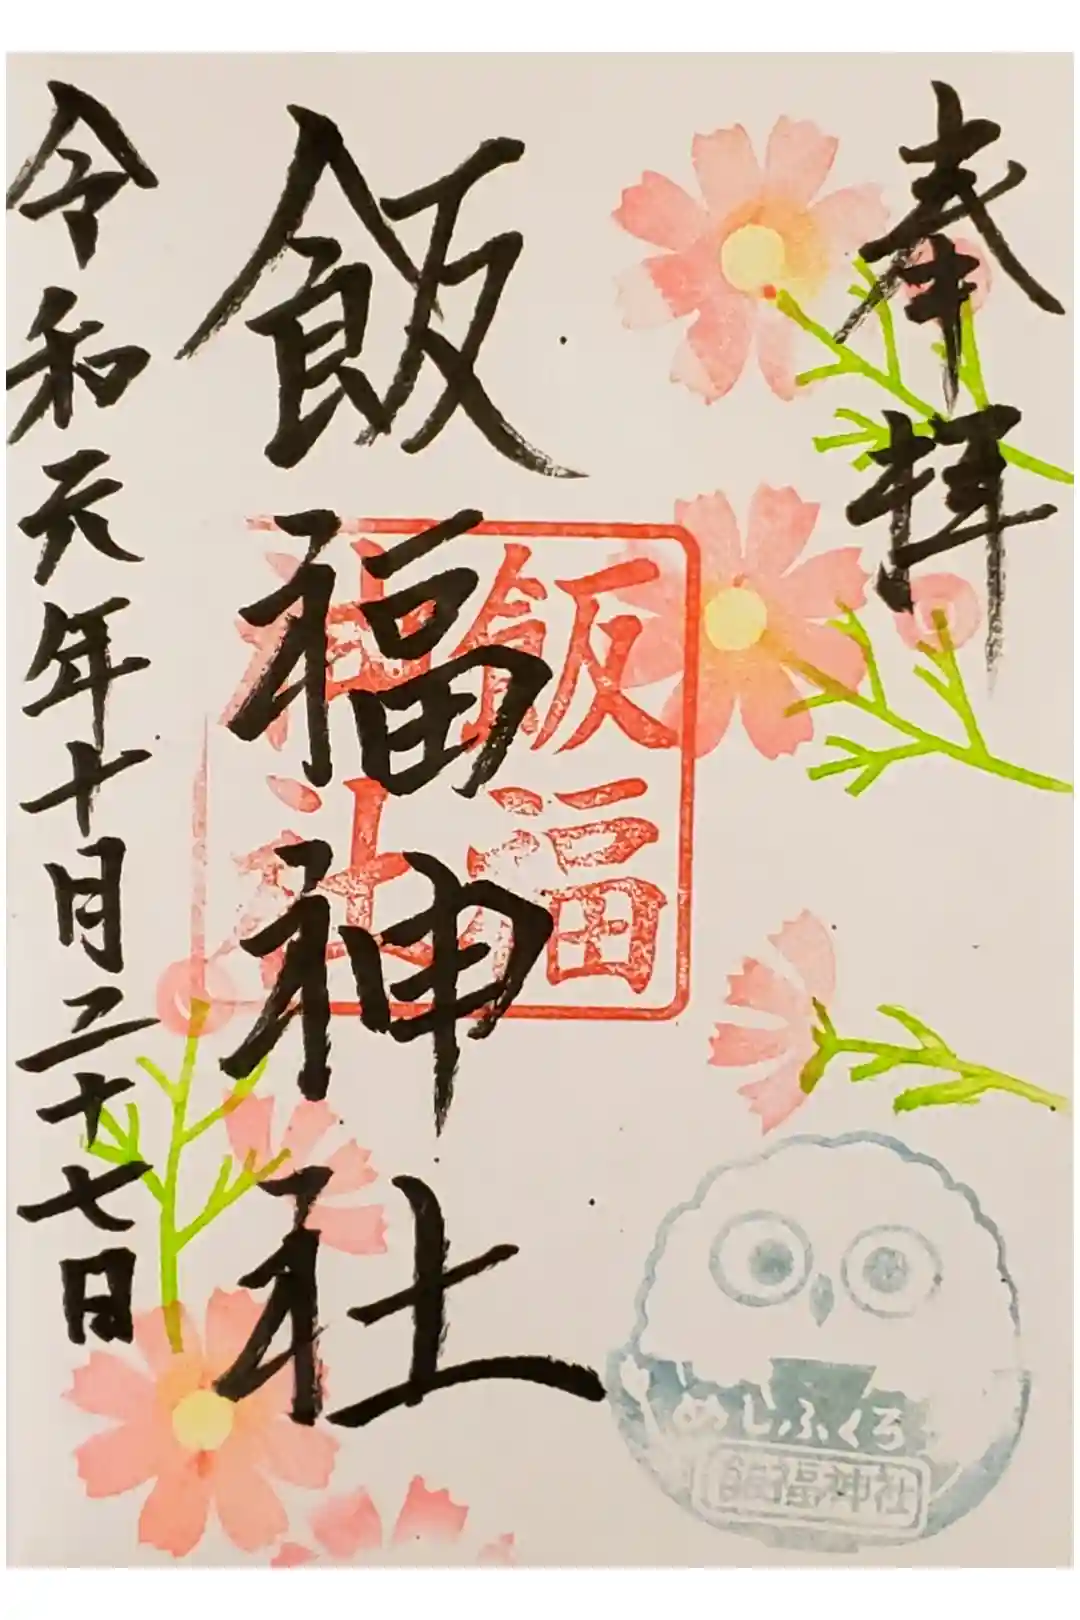 奉拝
飯福神社
飯福
神社
令和元年十月二十七日
めしふくろ
飯福神社